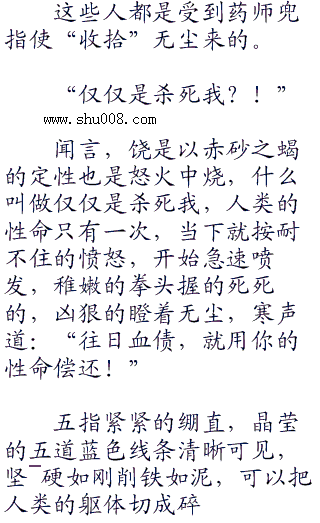 这些人都是受到药师兜
指使“收拾”无尘来的。
“仅仅是杀死我？！”
www.shu008.com
闻言，饶是以赤砂之蝎
的定性也是怒火中烧，什么
叫做仅仅是杀死我，人类的
性命只有一次，当下就按耐
不住的愤怒，开始急速喷
发，稚嫩的拳头握的死死
的，凶狠的瞪着无尘，寒声
道：“往日血债，就用你的
性命偿还！”
五指紧紧的绷直，晶莹
的五道蓝色线条清晰可见，
坚¯硬如刚削铁如泥，可以把
人类的躯体切成碎